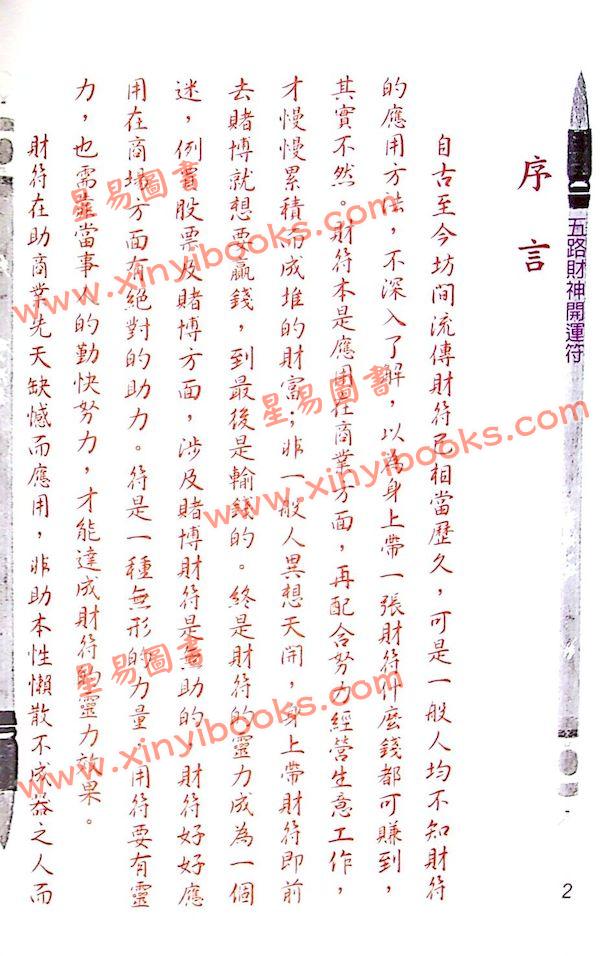 五路財神開運符
序言
自古至今坊間流傳財符已相當歷久，可是一般人均不知財符
的應用方法，不深入了解，以為身上帶一張財符什麼錢都可賺到，
其實不然。財符本是應用在商業方面，再配合努力經營生意工作，
才慢慢累積而成堆的財富；非一般人異想天開，身上帶財符即前
去賭博就想要贏錢，到最後是輸錢的。終是財符的靈力成為一個
迷，例買股票及賭博方面，涉及賭博財符是無助的，財符好好應
用在商場方面有絕對的助力。符是一種無形的力量，用符要有靈
力，也需靠當事人的勤快努力，才能達成財符的靈力效果。
財符在助商業先天缺憾而應用，非助本性懶散不成器之人而
2
星易圖書
www.xinyibooks.com
星易圖書
www.xinyibooks.com
星易圖書
www.xinyibooks.com